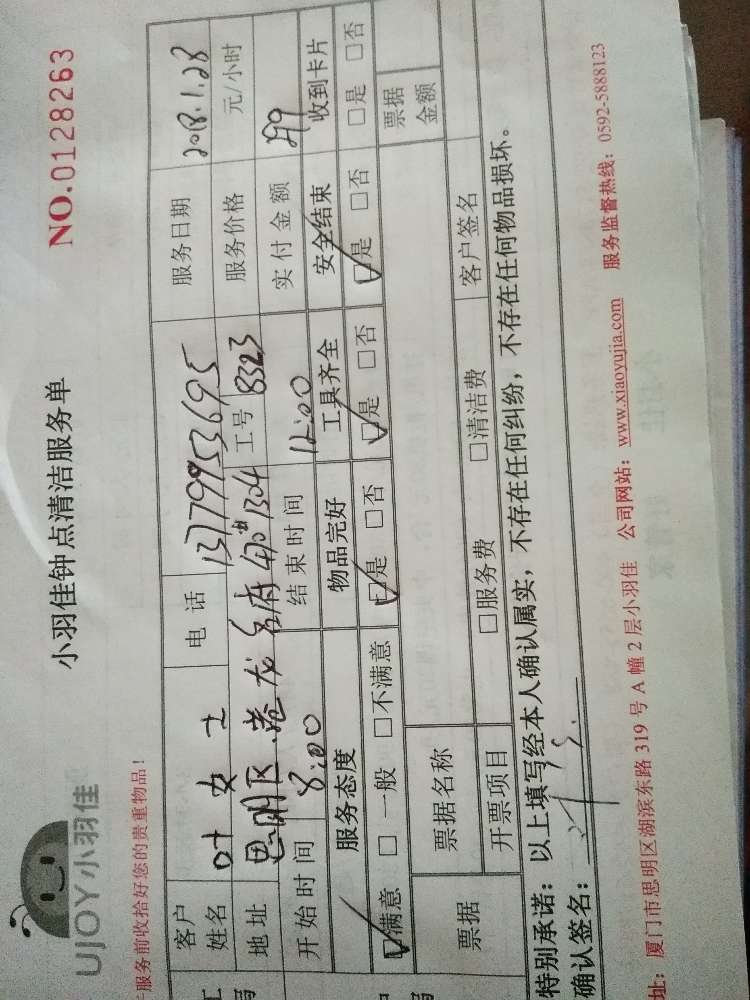 UJOY小羽佳
小羽佳钟点清洁服务单
NO.0128263
服务前收拾好您的贵重物品!
客户姓名 叶女士 电话 13779953695 服务日期 2018.1.28
地址 思明区 龙 府 4# 1304 工号 8323 服务价格 元/小时
开始时间 8:00 结束时间 12:00 实付金额
服务态度 物品完好 工具齐全 安全结束 收到卡片
☑满意 □一般 □不满意 ☑是 □否 ☑是 □否 ☑是 □否 □是 □否
票据 票据名称 票据金额
开票项目 □服务费 □清洁费 客户签名
特别承诺:以上填写经本人确认属实,不存在任何纠纷,不存在任何物品损坏。
确认签名:
址:厦门市思明区湖滨东路 319 号 A 幢 2 层小羽佳 公司网站:www.xiaoyujia.com 服务监督热线:0592-5888123